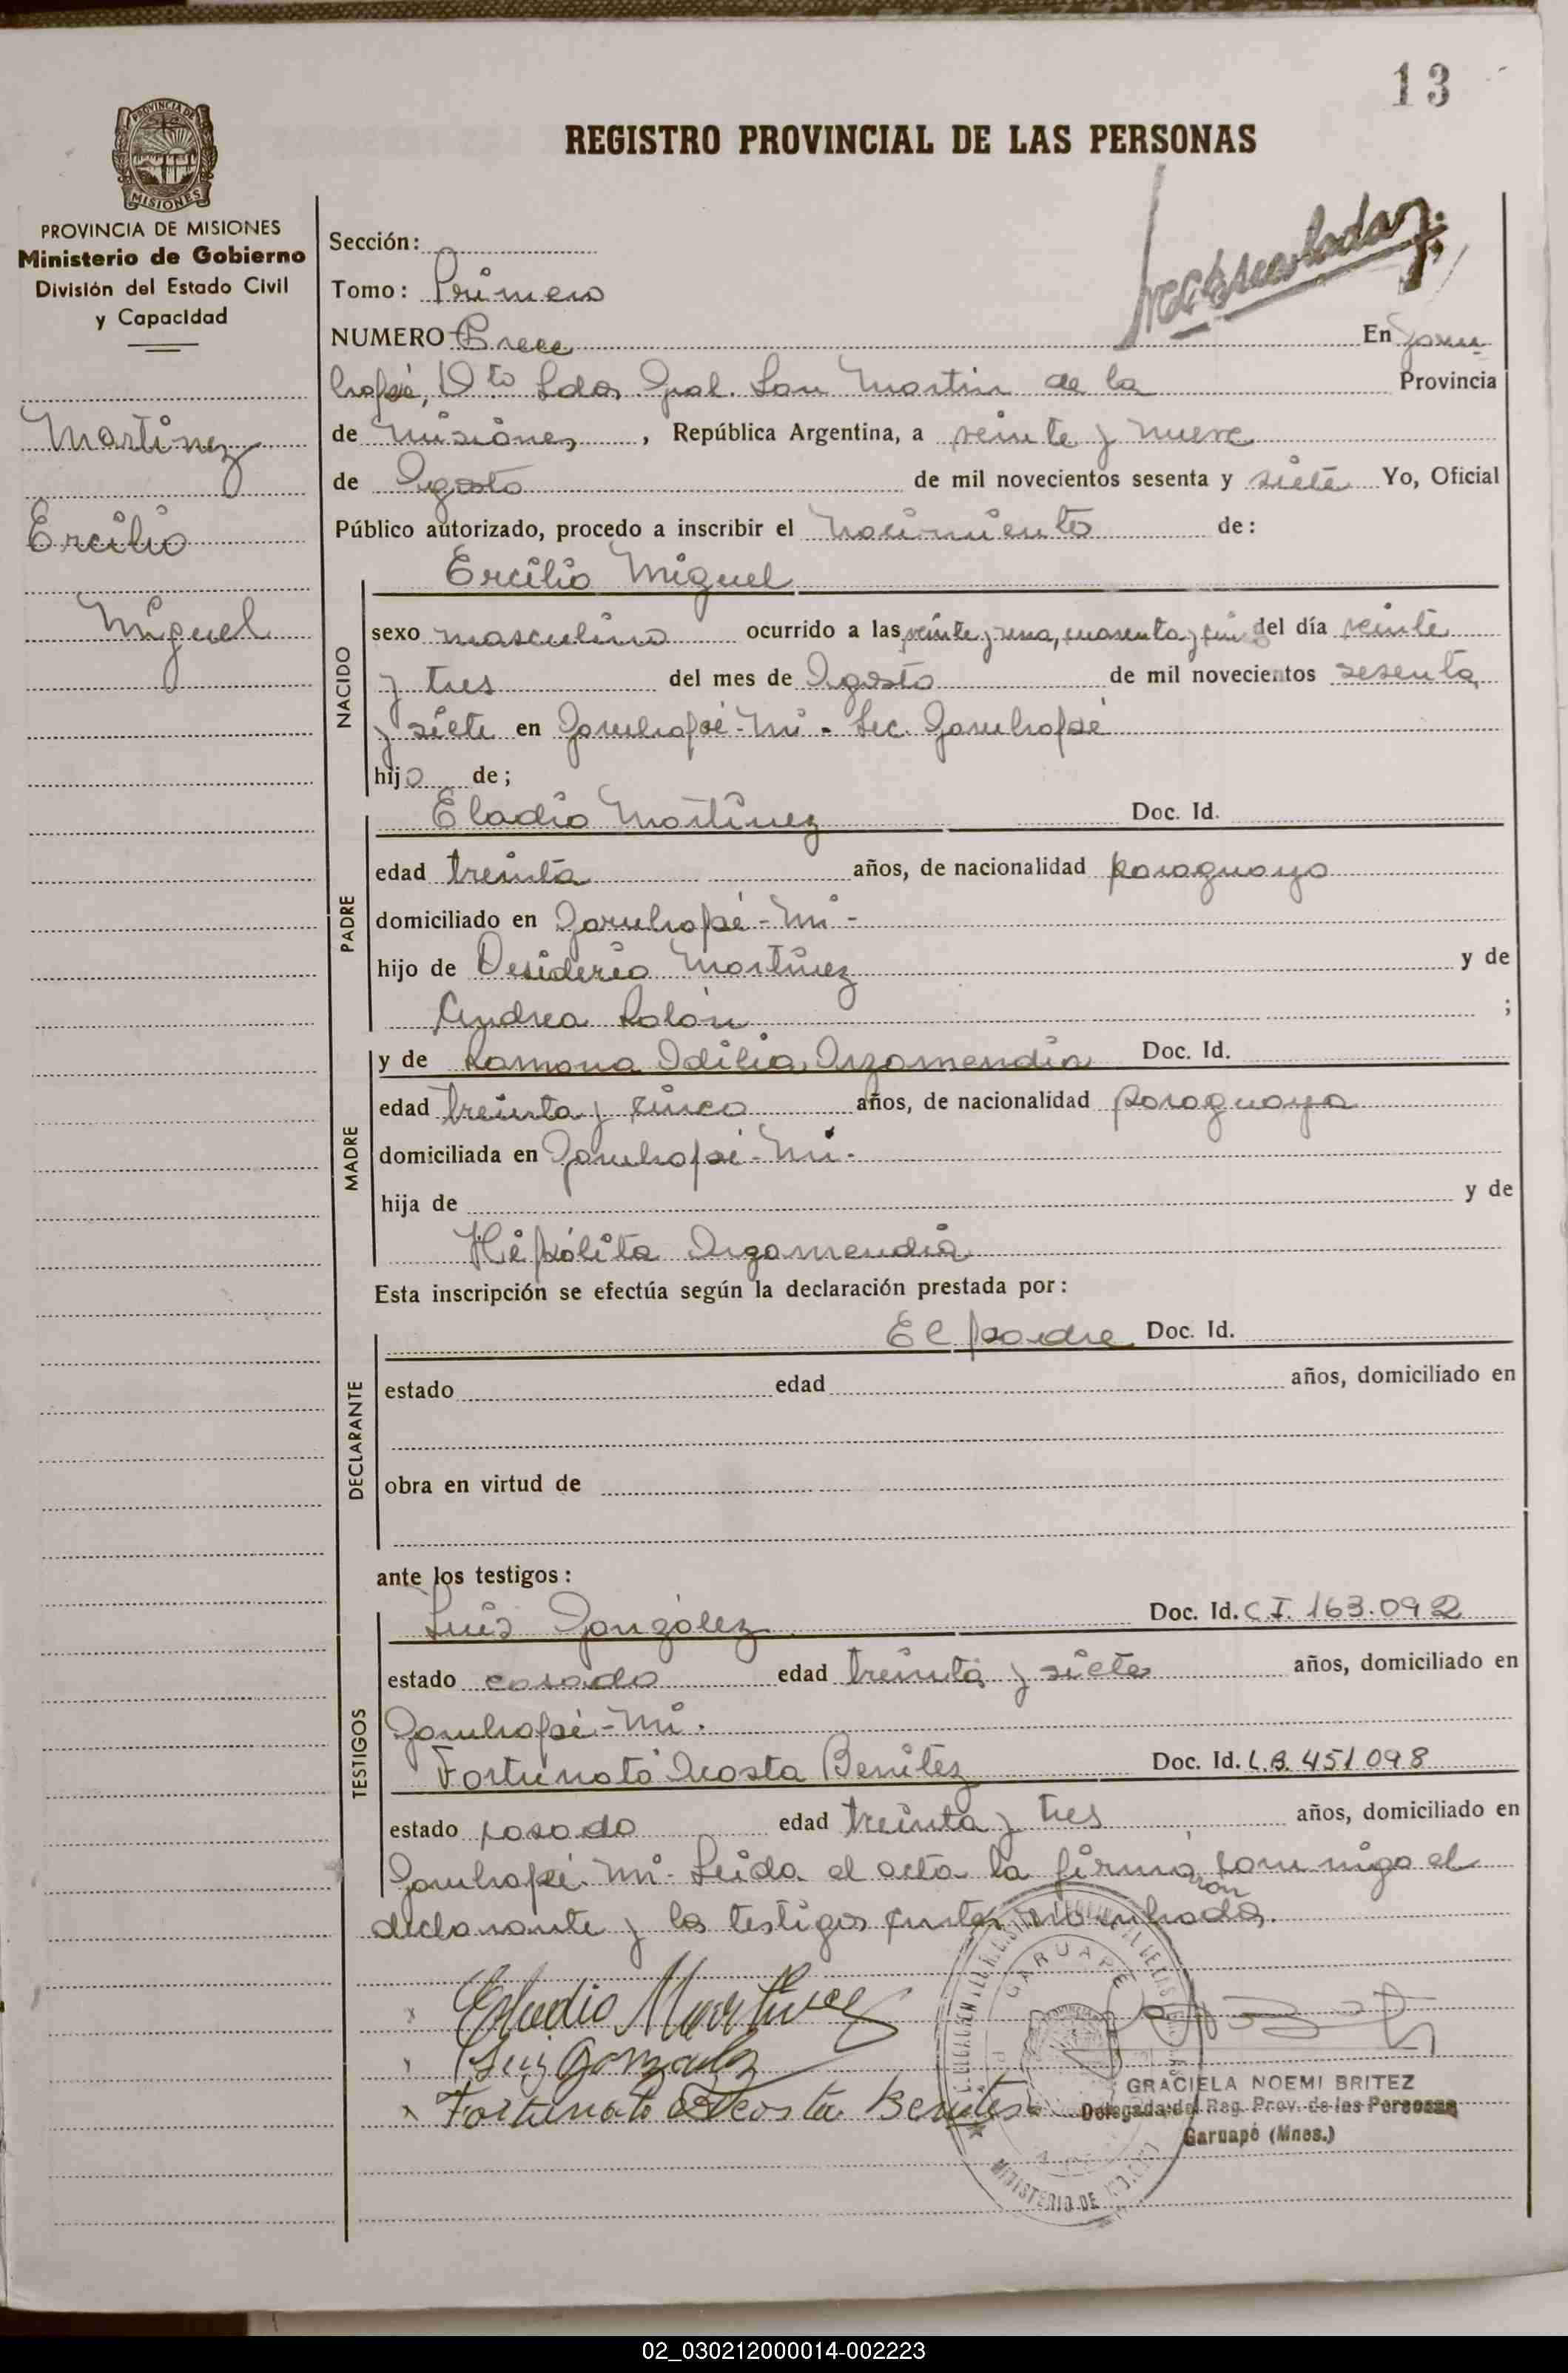 13
PROVINCIA DE
MISIONES
REGISTRO PROVINCIAL DE LAS PERSONAS
PROVINCIA DE MISIONES
Ministerio de Gobierno
División del Estado Civil
y Capacidad
Martinez
Ercilio
Miguel
Sección:
Tomo: Primero
NUMERO Trece En Garu
hapé, Dto Ldor. Gral. San Martin de la Provincia
de Misiones, República Argentina, a veinte y nueve
de Agosto de mil novecientos sesenta y siete Yo, Oficial
Público autorizado, procedo a inscribir el nacimiento de:
Ercilio Miguel
NACIDO
sexo masculino ocurrido a las veinte y una, cuarenta y cinco del día veinte
y tres del mes de Agosto de mil novecientos sesenta
y siete en Garuhapé-Mi- Sec. Garuhapé
hijo de;
PADRE
Eladio Martinez Doc. Id.
edad treinta años, de nacionalidad paraguayo
domiciliado en Garuhapé-Mi-
hijo de Desiderio Martinez y de
Andrea Rolón ;
MADRE
y de Ramona Idilia Arzamendia Doc. Id.
edad treinta y cinco años, de nacionalidad paraguaya
domiciliada en Garuhapé-Mi-
hija de y de
Hipólita Arzamendia
Esta inscripción se efectúa según la declaración prestada por:
DECLARANTE
El padre Doc. Id.
estado edad años, domiciliado en
obra en virtud de
ante los testigos:
TESTIGOS
Luis González Doc. Id. C.I. 163.092
estado casado edad treinta y siete años, domiciliado en
Garuhapé-Mi.
Fortunato Acosta Benitez Doc. Id. L.B. 451098
estado casado edad treinta y tres años, domiciliado en
Garuhapé Mi- Leida el acta la firman conmigo el
declarante y los testigos antes nombrados.
Eladio Martinez
Luis Gonzalez
Fortunato Acosta Benites
GARUAPE
MINISTERIO DE
GRACIELA NOEMI BRITEZ
Delegada del Reg. Prov. de las Personas
Garuapé (Mnes.)
02_030212000014-002223